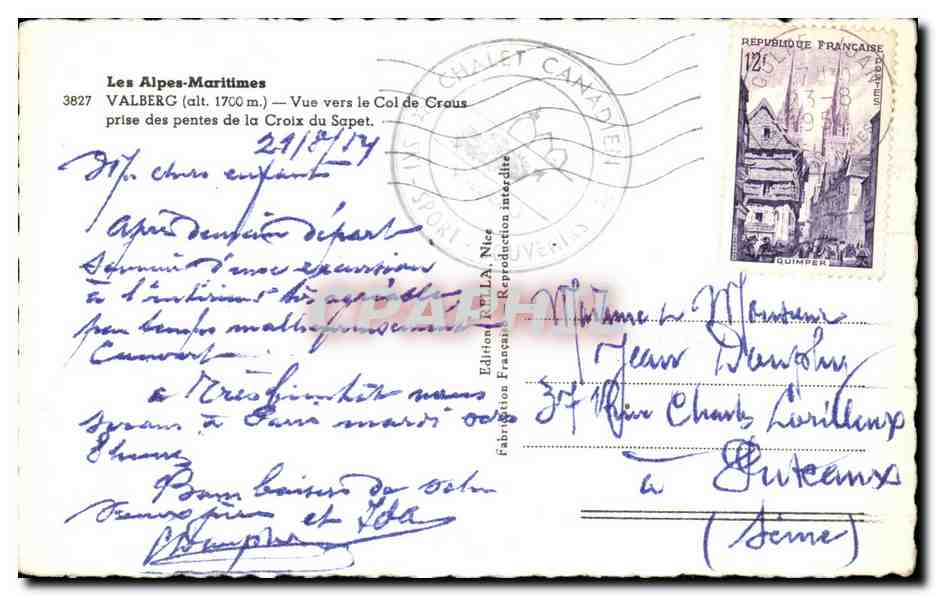 Les Alpes-Maritimes
3827 VALBERG (alt. 1700 m.) — Vue vers le Col de Crous
prise des pentes de la Croix du Sapet.
21/8/54
chers enfants
Après demain départ
Souvenir d'une excursion
à l'intérieur très agréable
par temps malheureusement
Couvert
à Très bientôt nous
serons à Paris mardi vers
8 heures
Bons baisers de votre
vieux père et Ida
Dauphy
CHALET CANADIEN
SKI SPORT - SOUVENIRS
Edition RELLA, Nice
Fabrication Française - Reproduction interdite
CPAPHIL
RÉPUBLIQUE FRANÇAISE
12F
POSTES
QUIMPER
Madame et Monsieur
Jean Dauphy
37 Rue Charles Lorilleux
à Puteaux
(Seine)